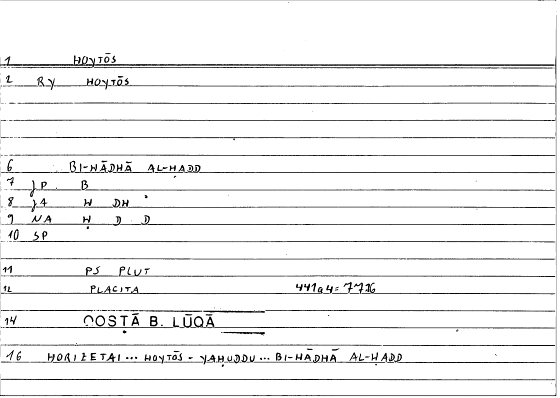 1 HOYTŌS
2 RY HOYTŌS
6 BI-HĀDHĀ AL-ḤADD
7 JP B
8 J4 H DH
9 NA Ḥ D D
10 SP
11 PS PLUT
12 PLACITA 441a4=7716
14 QOSṬĀ B. LŪQĀ
16 HORIZETAI... HOYTŌS - YAḤUDDU... BI-HĀDHĀ AL-ḤADD